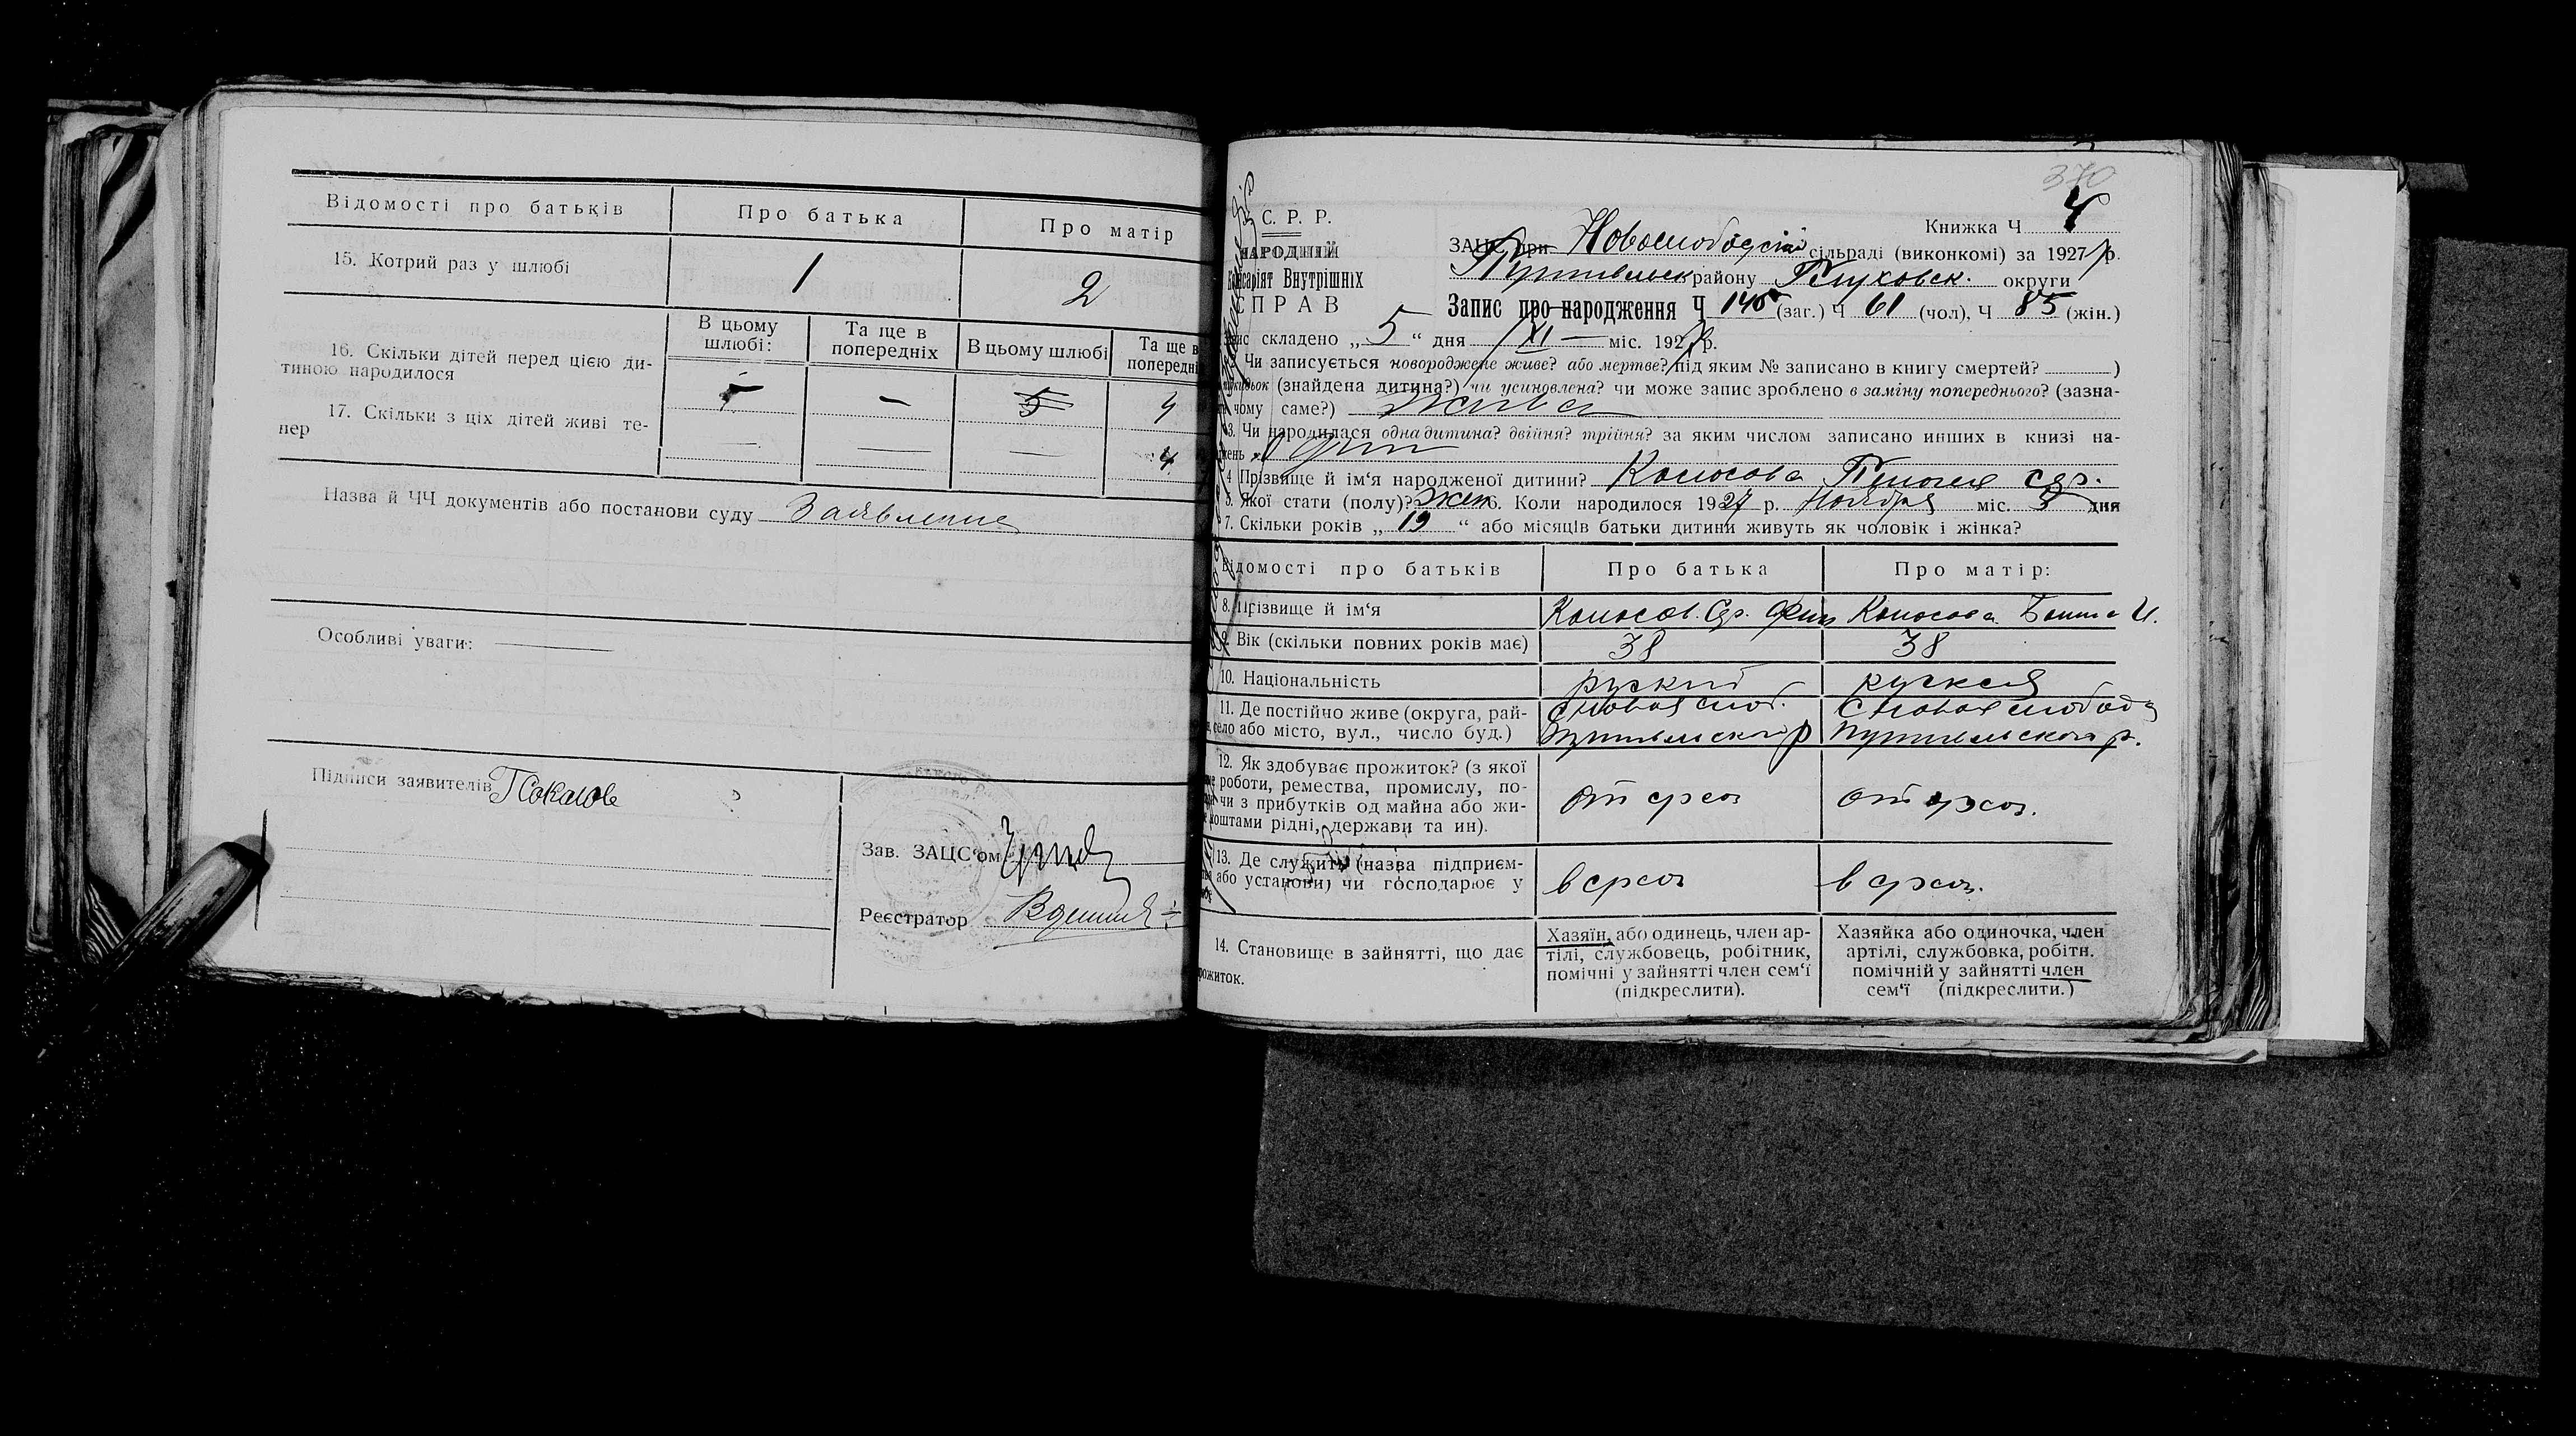 Відомості про батьків Про батька Про матір
15. Котрий раз у шлюбі 1 2
В цьому шлюбі: Та ще в попередніх В цьому шлюбі Та ще в
16. Скільки дітей перед цією ди-
тиною народилося — — 5 4
17. Скільки з ціх дітей живі те-
пер — — — 4
Назва й ЧЧ документів або постанови суду Заявление
Особливі уваги: —
Підписи заявителів
Зав. ЗАЦС‘ом
Реєстратор
370
С. Р. Р.
НАРОДНІЙ
Внутрішніх
СПРАВ
Книжка Ч 4
ЗАЦС при Новослободской сільраді (виконкомі) за 1927 р.
Путивльск району Глуховск. округи
Запис про народження Ч 146 (заг.) Ч 61 (чол), Ч 85 (жін.)
складено „ 5 “ дня XI — міс. 1927 р.
Чи записується новороджене живе? або мертве? під яким № записано в книгу смертей? )
(знайдена дитина?) чи усиновлена? чи може запис зроблено в заміну попереднього? (зазна-
чому саме?) Жива
3. Чи народилася одна дитина? двійня? трійня? за яким числом записано инших в книзі на-
Один
4 Прізвище й ім‘я народженої дитини?
5. Якої стати (полу)? Жен 6. Коли народилося 1927 р. Ноября міс. 3 дня
7. Скільки років „ 19 “ або місяців батьки дитини живуть як чоловік і жінка?
Відомості про батьків Про батька Про матір:
8. Прізвище й ім‘я
9. Вік (скільки повних років має) 38 38
10. Національність руский руская
11. Де постійно живе (округа, рай- С Новая слоб. С Новая слобода
село або місто, вул., число буд.) Путивльского р Путивльского р.
12. Як здобуває прожиток? (з якої
роботи, ремества, промислу, по-
чи з прибутків од майна або жи-
коштами рідні, держави та ин).
от срхоз от срхоз.
13. Де служить (назва підприєм-
або установи) чи господарює у
в срхоз в срхоз.
14. Становище в зайнятті, що дає
прожиток.
Хазяїн, або одинець, член ар-
тілі, службовець, робітник,
помічні у зайнятті член сем‘ї
(підкреслити).
Хазяйка або одиночка, член
артілі, службовка, робітн.
помічній у зайнятті член
сем‘ї (підкреслити.)